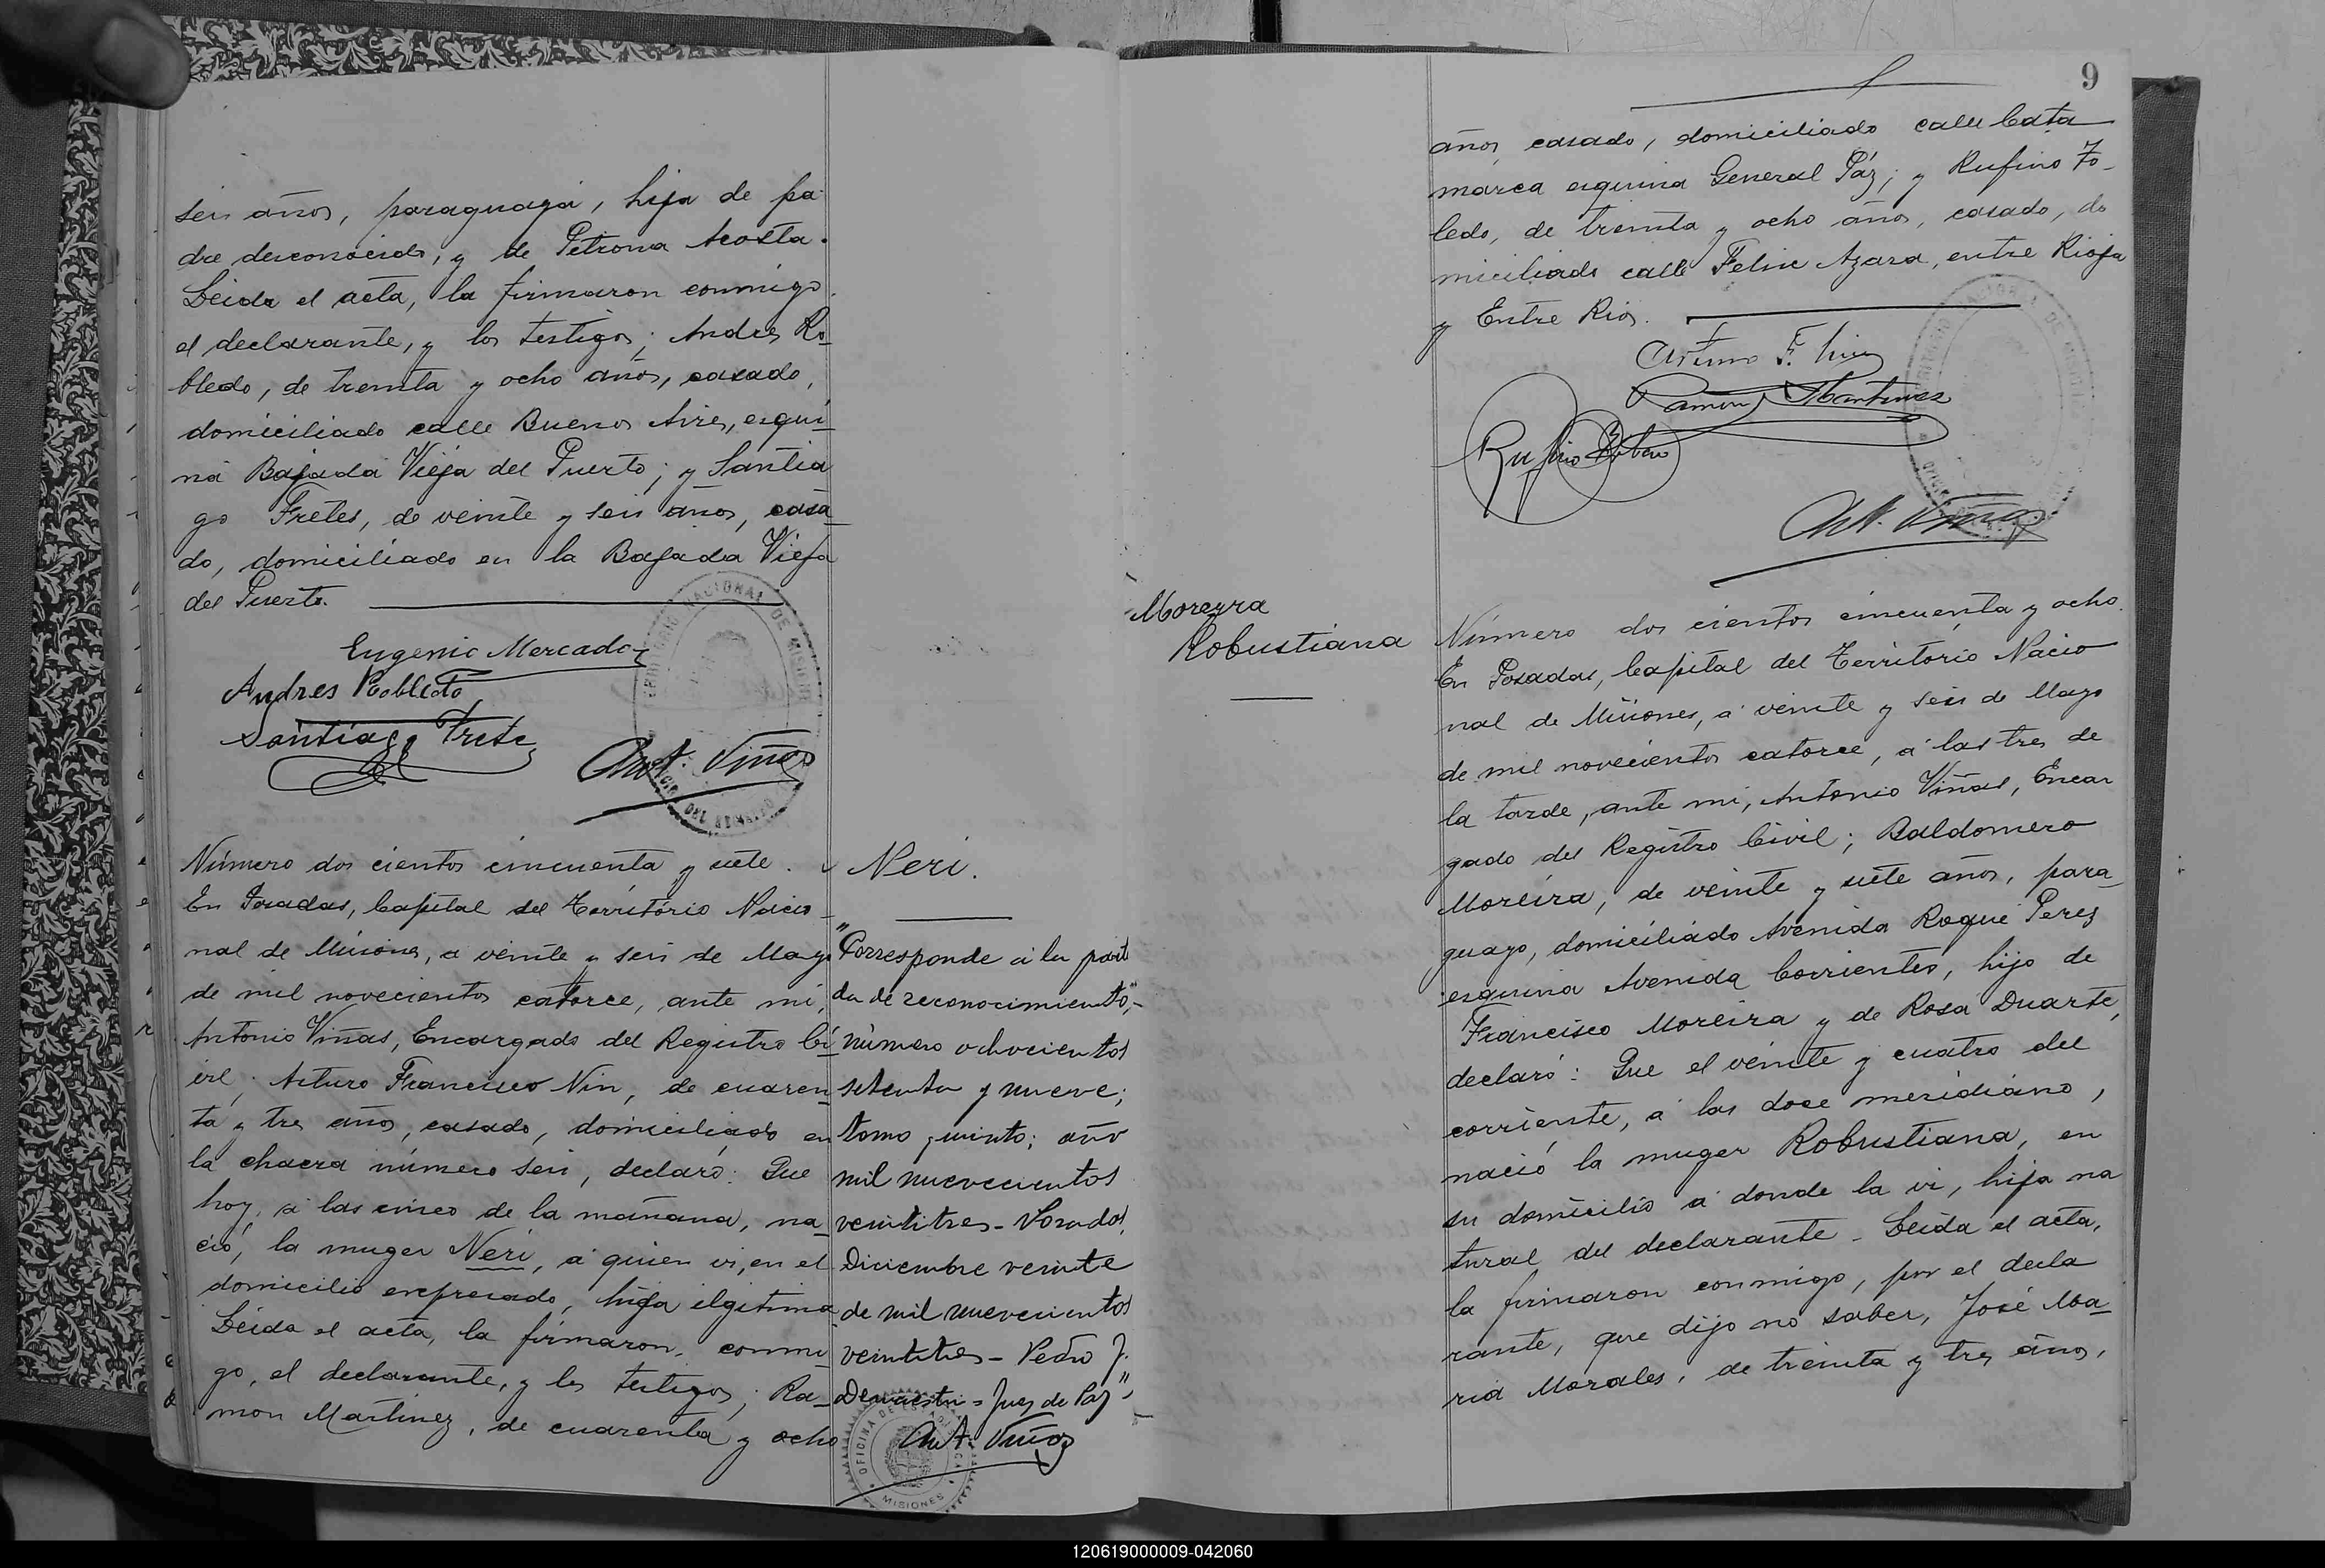 seis años, paraguaya, hija de pa-
dre desconocido, y de Petrona Acosta.
Leida el acta, la firmaron conmigo
el declarante, y los testigos; Andres Ro-
bledo, de treinta y ocho años, casado,
domiciliado calle Buenos Aires, esqui-
na Bajada Vieja del Puerto; y Santia
go Fretes, de veinte y seis años, casa-
do, domiciliado en la Bajada Vieja
del Puerto.
Eugenio Mercado
Andres Robledo
Santiago Frete
Ant. Viñas
Número dos cientos cincuenta y siete.
En Posadas, Capital del Território Nacio-
nal de Misiones, a veinte y seis de Mayo
de mil novecientos catorce, ante mi,
Antonio Viñas, Encargado del Registro Ci-
vil; Arturo Francisco Nin, de cuaren-
ta y tres años, casado, domiciliado en
la chacra número seis, declaró: Que
hoy, á las cinco de la mañana, na
ció, la muger Neri, á quien vi, en el
domicilio expresado, hija ilgitima
Leida el acta, la firmaron, conmi-
go, el declarante, y los testigos; Ra-
mon Martinez, de cuarenta y ocho
Neri.
"Corresponde á la parti
da de reconocimiento,
número ochocientos
setenta y nueve;
tomo quinto; año
mil nuevecientos
veintitres - Posadas,
Diciembre veinte
de mil nuevecientos
veintitres - Pedro J.
= Juez de Paz"
Ant. Viñas
OFICINA DE
MISIONES
9
años, casado, domiciliado calle Cata
marca esquina General Páz; y Rufino To-
ledo, de treinta y ocho años, casado, do
miciliado calle Felix Azara, entre Rioja
y Entre Rios.
Arturo F. Nin
Ramon Martinez
Rufino Toledo
Ant. Viñas
Moreyra
Robustiana
Número dos cientos cincuenta y ocho.
En Posadas, Capital del Território Nacio
nal de Misiones, á veinte y seis de Mayo
de mil novecientos catorce, á las tres de
la tarde, ante mi, Antonio Viñas, Encar
gado del Registro Civil; Baldomero
Moreira, de veinte y siete años, para-
guayo, domiciliado Avenida Roque Perez
esquina Avenida Corrientes, hijo de
Francisco Moreira y de Rosa Duarte,
declaró: Que el veinte y cuatro del
corriente, á las doce meridiano,
nació la muger Robustiana, en
su domicilio a donde la vi, hija na
tural del declarante - Leida el acta,
la firmaron conmigo, por el decla
rante, que dijo no saber, José Ma-
ria Morales, de treinta y tres años,
120619000009-042060